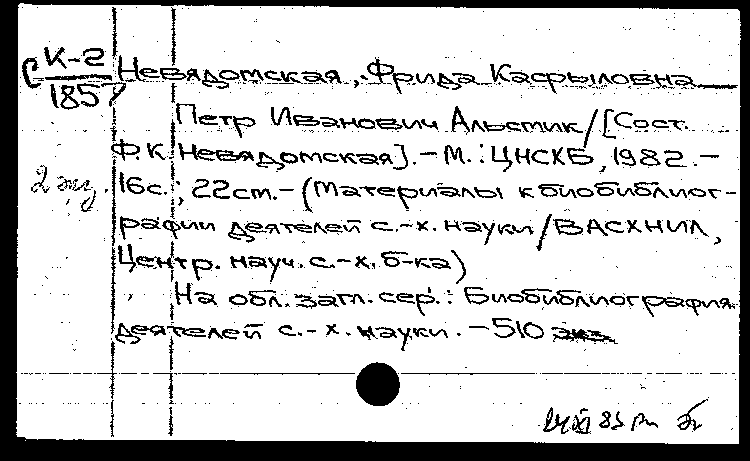 К-2 Невядомская, Фрида Кафыловна
1857
Петр Иванович Альсмик/[Сост.
Ф.К. Невядомская]. – М.: ЦНСХБ, 1982. –
2 экз. 16с.; 22см. – (Материалы к биобиблиог-
рафии деятелей с.-х. науки/ВАСХНИЛ,
Центр. науч. с.-х. б-ка)
На обл. загл. сер.: Биобиблиография
деятелей с.-х. науки. – 510 экз.
83